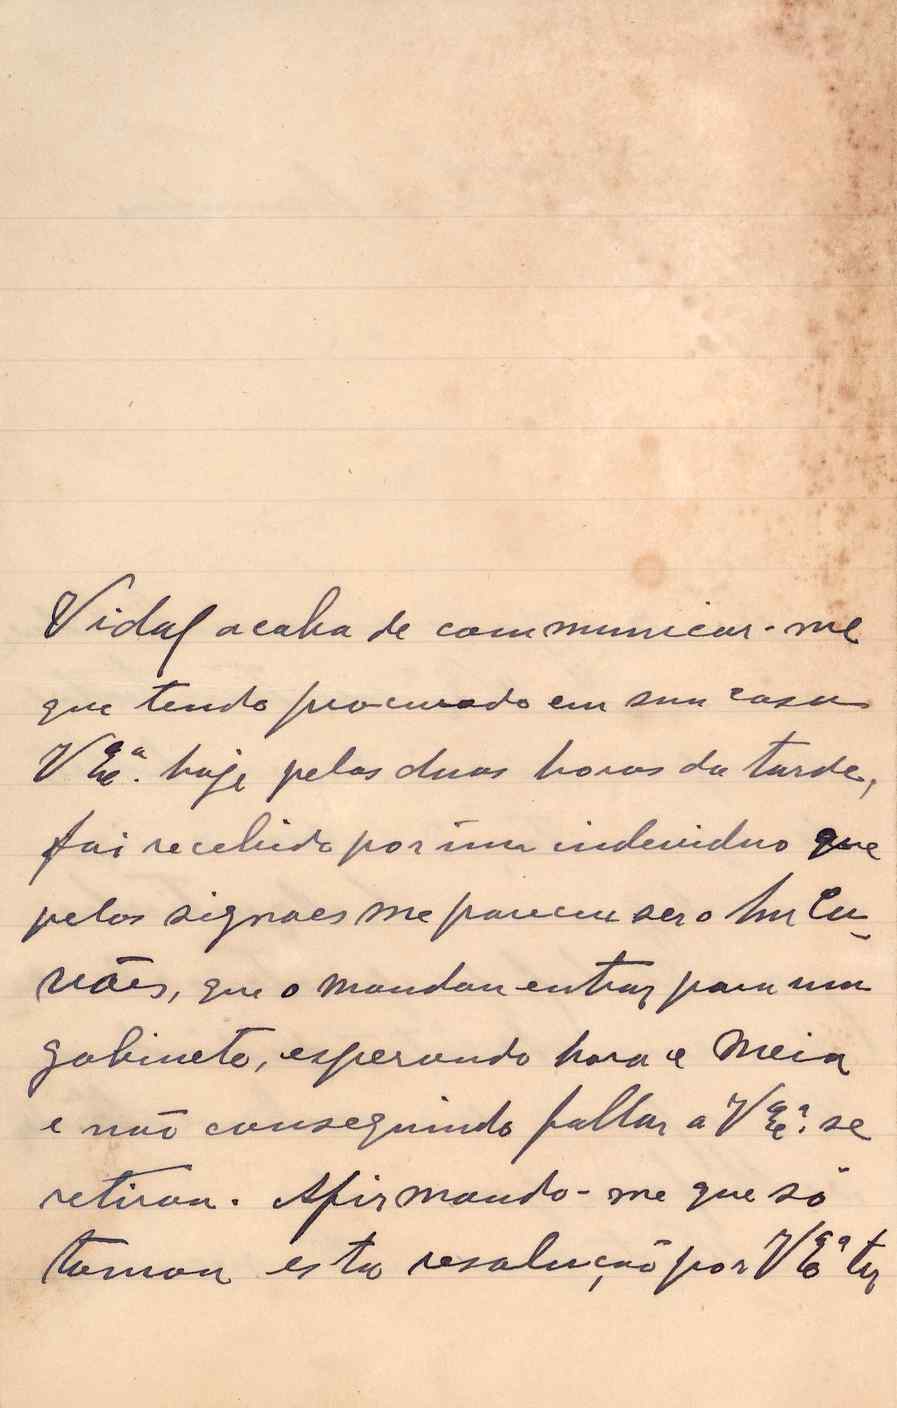 Vidal acaba de communicar-me
que tendo procurado em sua casa
V Exª. hoje pelas duas horas da tarde,
foi recebido por um individuo que
pelos signaes me pareceu ser o
, que o mandou entrar para um
gabinete, esperando hora e meia
e não conseguindo fallar a V Exª. se
retirou. Afirmando-me que só
tomou esta resolução por V Exª ter